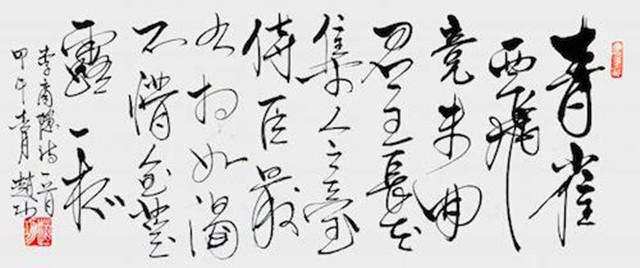 青雀
西飛
竟未回
君王長在
集靈臺
侍臣最
有相如渴
不賜金莖
露一杯
李商隐诗一首
甲午春月